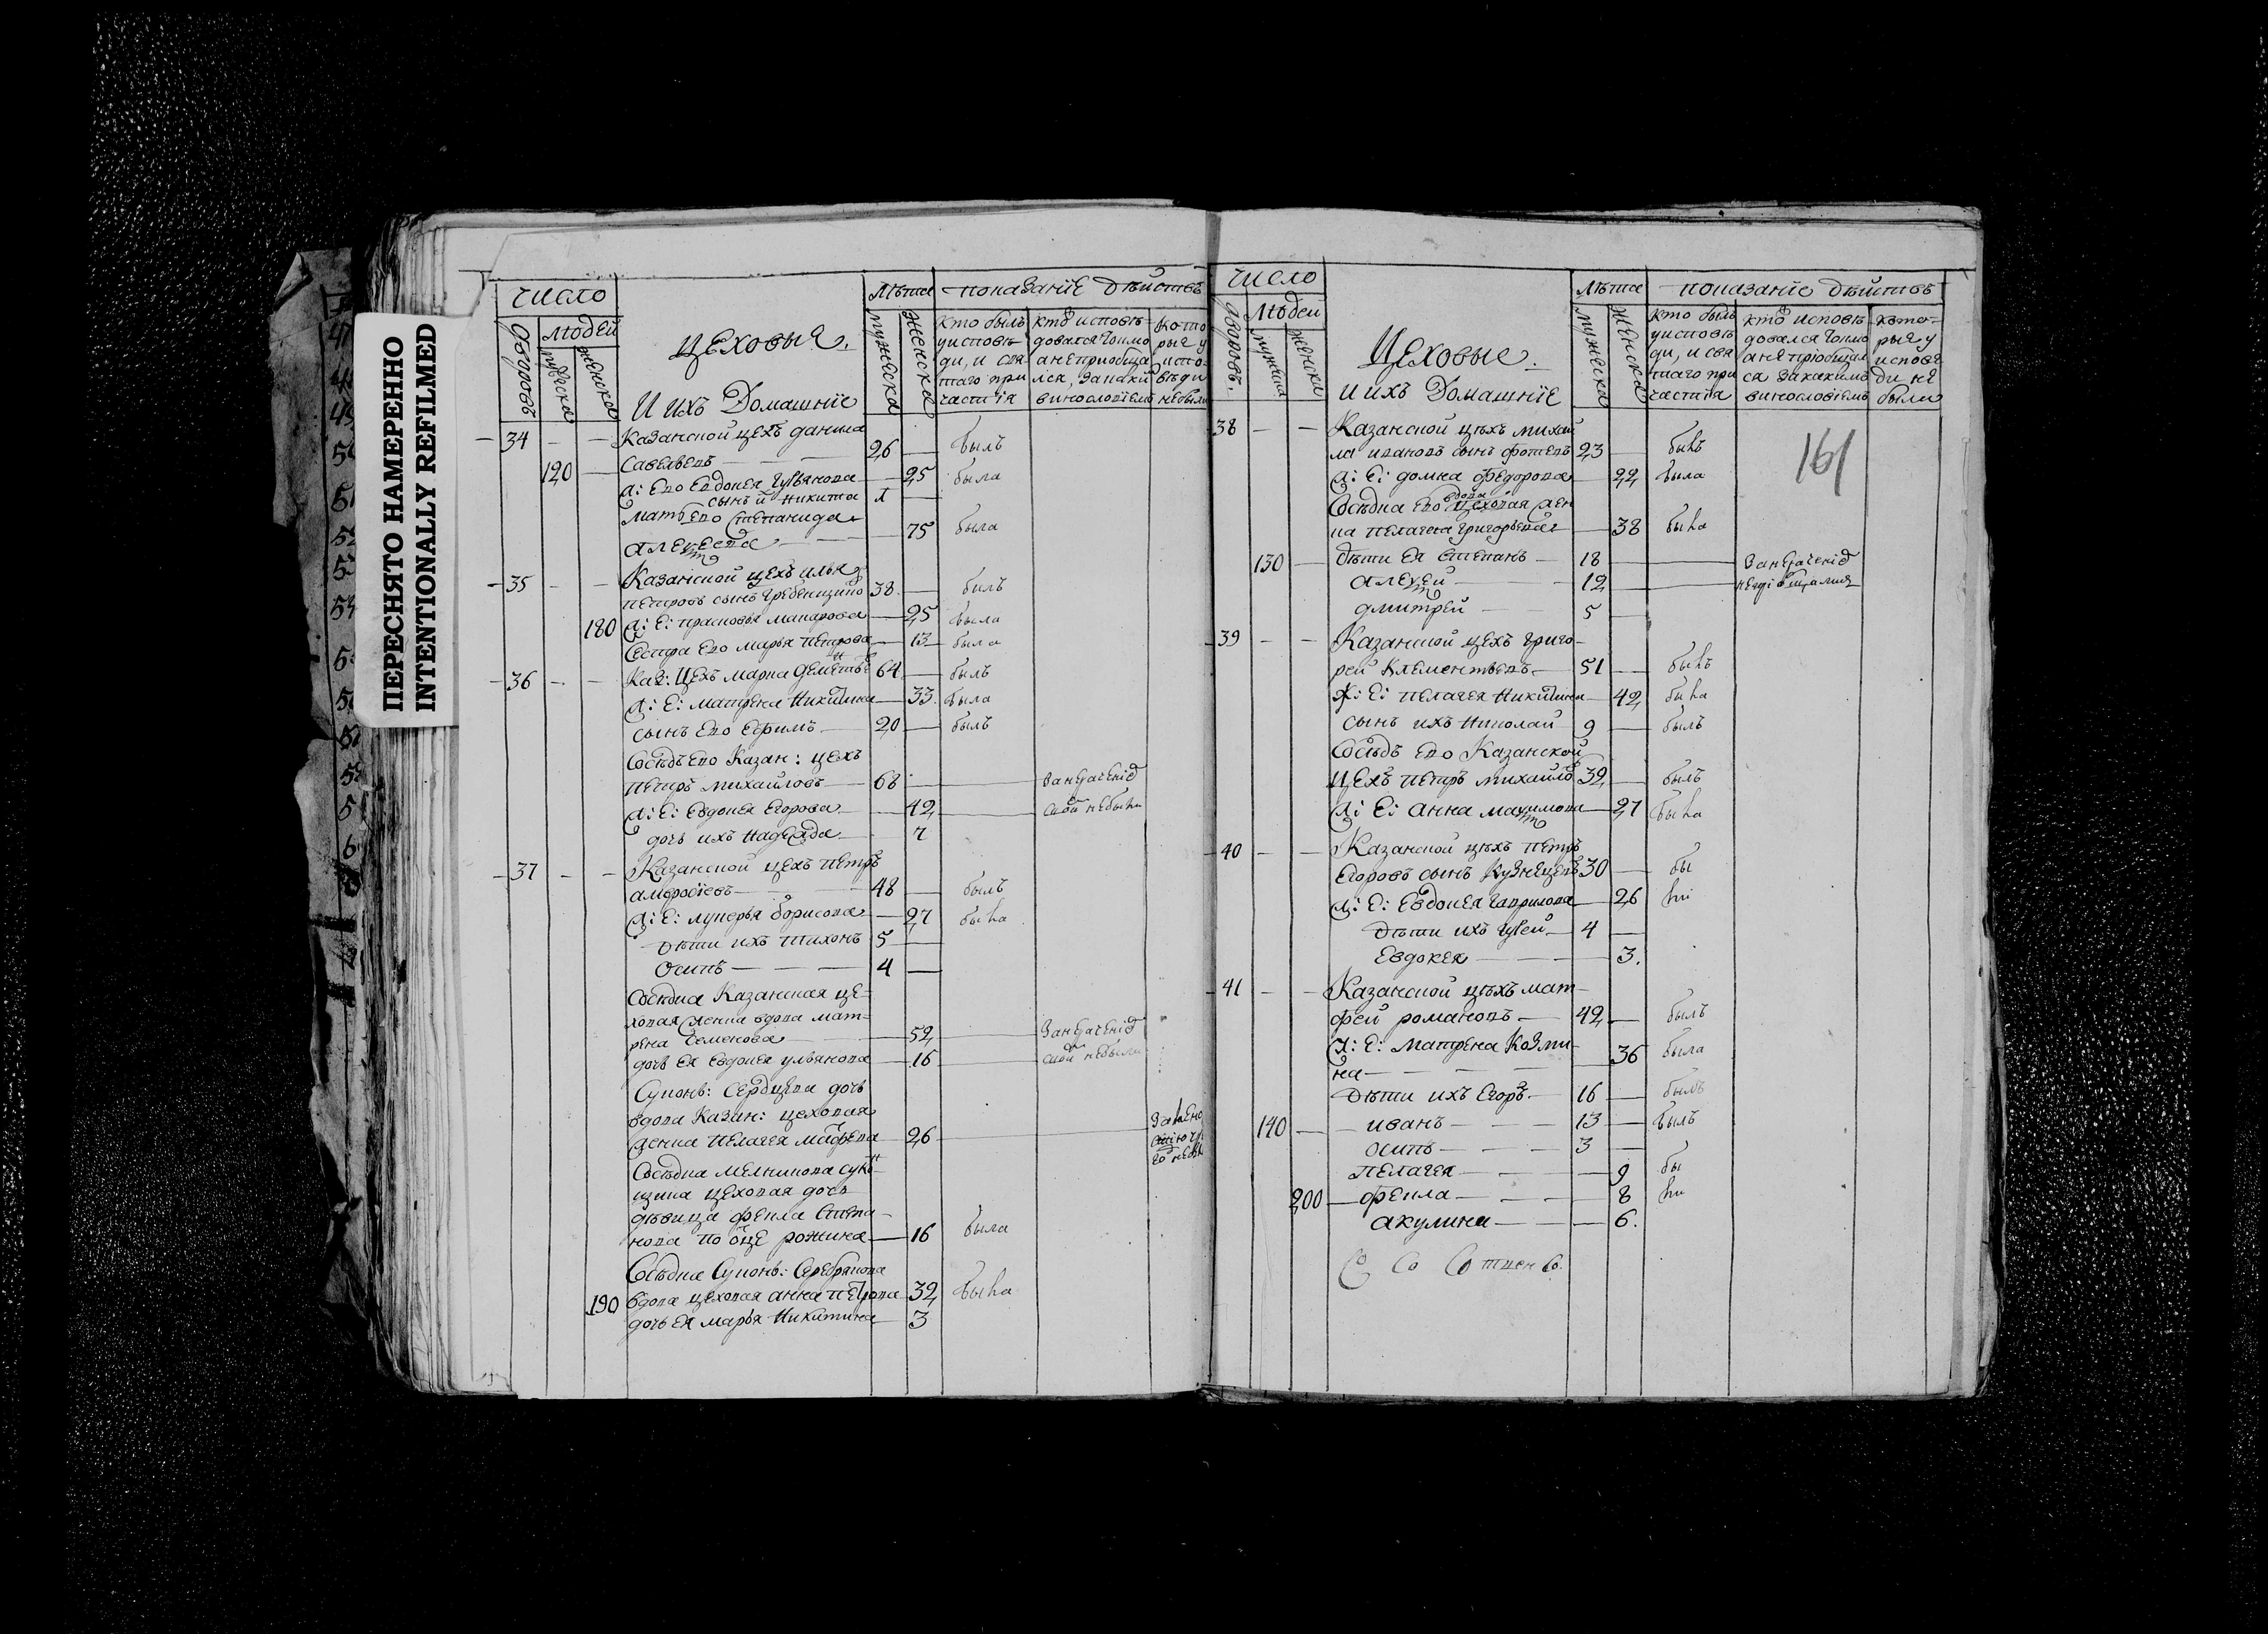 ПЕРЕСНЯТО НАМЕРЕННО
INTENTIONALLY REFILMED
число
лѣта
показанїе дѣйствъ
дворовъ
людей
мужеска
женска
цеховые.
И ихъ Домашнїе
мужеска
женска
кто былъ у исповѣди, и святаго причастїя
кто исповѣдовался токмо а не приобщался, за какимъ винословїемъ
которые у исповѣди не были
34 Казанской цехъ данила
120 Савельевъ 26 былъ
ж: Его Евдокея 25 была
сынъ и Никита 1
мать его Степанида
Алексева 75 была
35 Казанской цехъ илья
петровъ сынъ Гребенщико 38 былъ
180 ж: Е: прасковья макарова 25 была
Сестра Его марья петрова 13 была
36 Каз: Цехъ марка дементье 64 былъ
ж: Е: матрена Никитина 33 была
сынъ Его Ефримъ 20 былъ
Сосѣдъ Его Казан: цехъ
петръ михайловъ 68
ж: Е: Евдокея Егорова 42 не были
дочь ихъ Надежда 7
37 Казанской цехъ петръ
амвросїевъ 48 былъ
ж: Е: лукерья борисова 27 была
дѣти ихъ тихонъ 5
осипъ 4
Сосѣдка Казанская це=
ховая женка вдова мат=
рена Семенова 52
дочь Ея Евдокея ульянова 16 не были
Суконь: Сердцева дочь
вдова Казан: цеховая
женка пелагея 26
Сосѣдка мелникова сукн
щика цеховая дочь
дѣвица фекла Степа-
нова по оце рожина 16 была
Сосѣдка Суконь: Серебрякова
190 вдова цеховая анна петрова 32 была
дочь Ея марья Никитина 3
число
лѣта
показанїе дѣйствъ
дворовъ.
людей
мужеска
женска
Цеховые.
и ихъ Домашнїе
мужеска
женска
кто былъ у исповѣди, и святаго причастїя
кто исповѣдовался токмо а не прїобщался за какимъ винословїемъ
которые у исповѣди не были
161
38 Казанской цѣхъ михай
ла ивановъ сынъ фотевъ 23 былъ
ж: Е: домна федорова 22 была
вдова
Сосѣдка Его цеховая жен
ка пелагея григорьева 38 была
130 дѣти Ея Степанъ 18
Алексей 12
дмитрей 5
39 Казанской цехъ Григо-
рей Клементьевъ 51 былъ
ж: Е: пелагея Никитина 42 была
сынъ ихъ Николай 9 былъ
Сосѣдъ Его Казанской
цехъ петръ михайло 32 былъ
ж: Е: анна максимова 27 была
40 Казанской цѣхъ петръ
Егоровъ сынъ Кузнецевъ 30 бы
ж: Е: Евдокея гаврилова 26 ли
дѣти ихъ 4
Евдокея 3.
41 Казанской цѣхъ мат-
фей романовъ 42 былъ
ж: Е: матрена Козми-
на 36 была
дѣти ихъ Егоръ 16 былъ
140 иванъ 13 былъ
осипъ 3
пелагея 9 бы
200 фекла 8 ли
акулина 6.